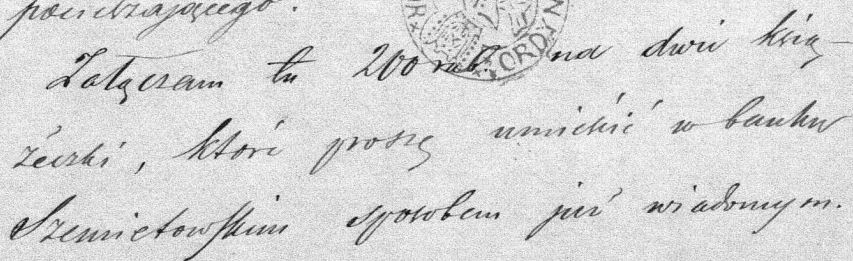 pocieszającego.
Załączam tu 200 rub. na dwie ksią-
żeczki, które proszę umieścić w banku
Szemiotowskim sposobem już wiadomym.
ORDYN